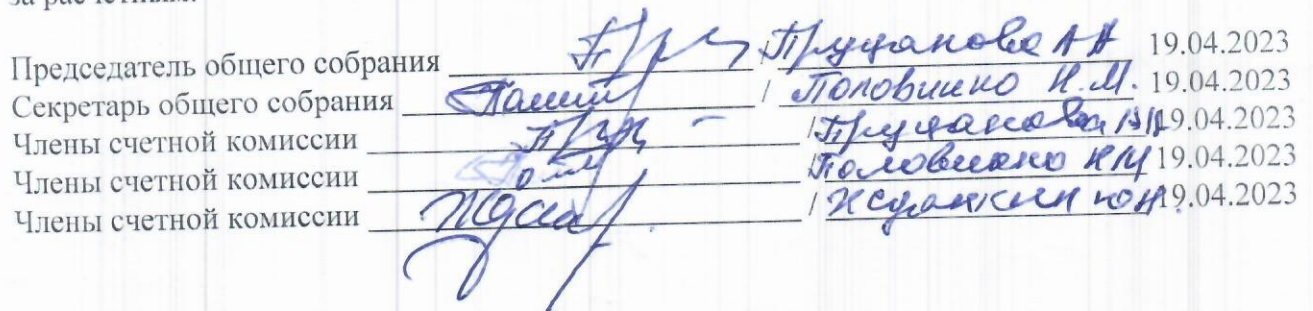 за расчетным.
Председатель общего собрания / А А 19.04.2023
Секретарь общего собрания / Половинко Н.М. 19.04.2023
Члены счетной комиссии / 19.04.2023
Члены счетной комиссии / Половинко НМ 19.04.2023
Члены счетной комиссии / 19.04.2023